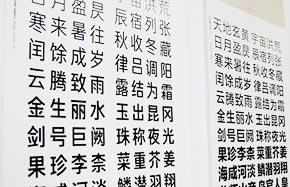 宇宙洪荒
日月盈昃 辰宿列张
寒来暑往 秋收冬藏
闰馀成岁 律吕调阳
云腾致雨 露结为霜
金生丽水 玉出昆冈
剑号巨阙 珠称夜光
果珍李柰 菜重芥姜
鳞潜羽翔
天地玄黄 宇宙洪荒
日月盈昃 辰宿列张
寒来暑往 秋收冬藏
闰馀成岁 律吕调阳
云腾致雨 露结为霜
金生丽水 玉出昆冈
剑号巨阙 珠称夜光
果珍李柰 菜重芥姜
海咸河淡 鳞潜羽翔
官人皇